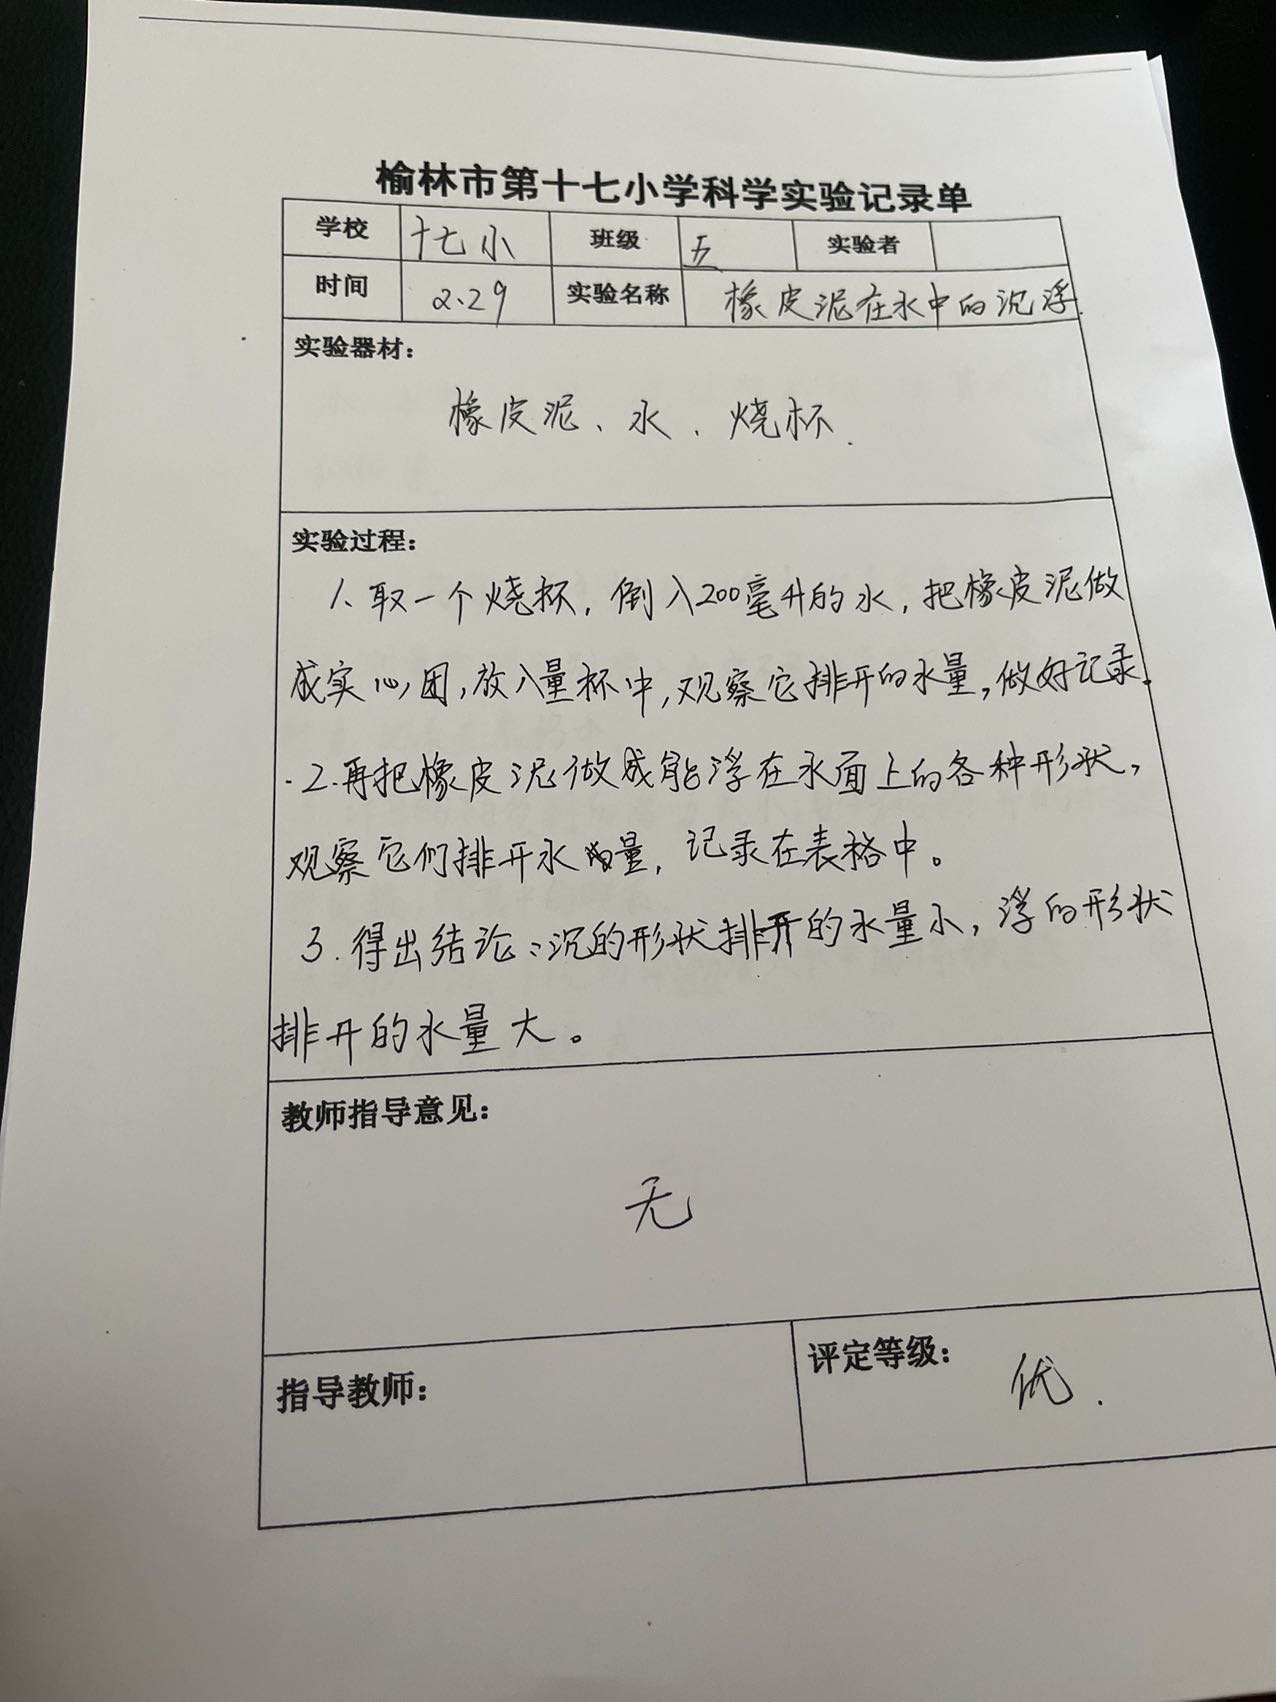 榆林市第十七小学科学实验记录单
学校 十七小 班级 五 实验者
时间 2.29 实验名称 橡皮泥在水中的沉浮.
实验器材：
橡皮泥、水、烧杯.
实验过程：
1、取一个烧杯，倒入200毫升的水，把橡皮泥做
成实心团，放入量杯中，观察它排开的水量，做好记录.
2.再把橡皮泥做成能浮在水面上的各种形状，
观察它们排开水的量，记录在表格中。
3.得出结论：沉的形状排开的水量小，浮的形状
排开的水量大。
教师指导意见：
无
指导教师：
评定等级： 优.